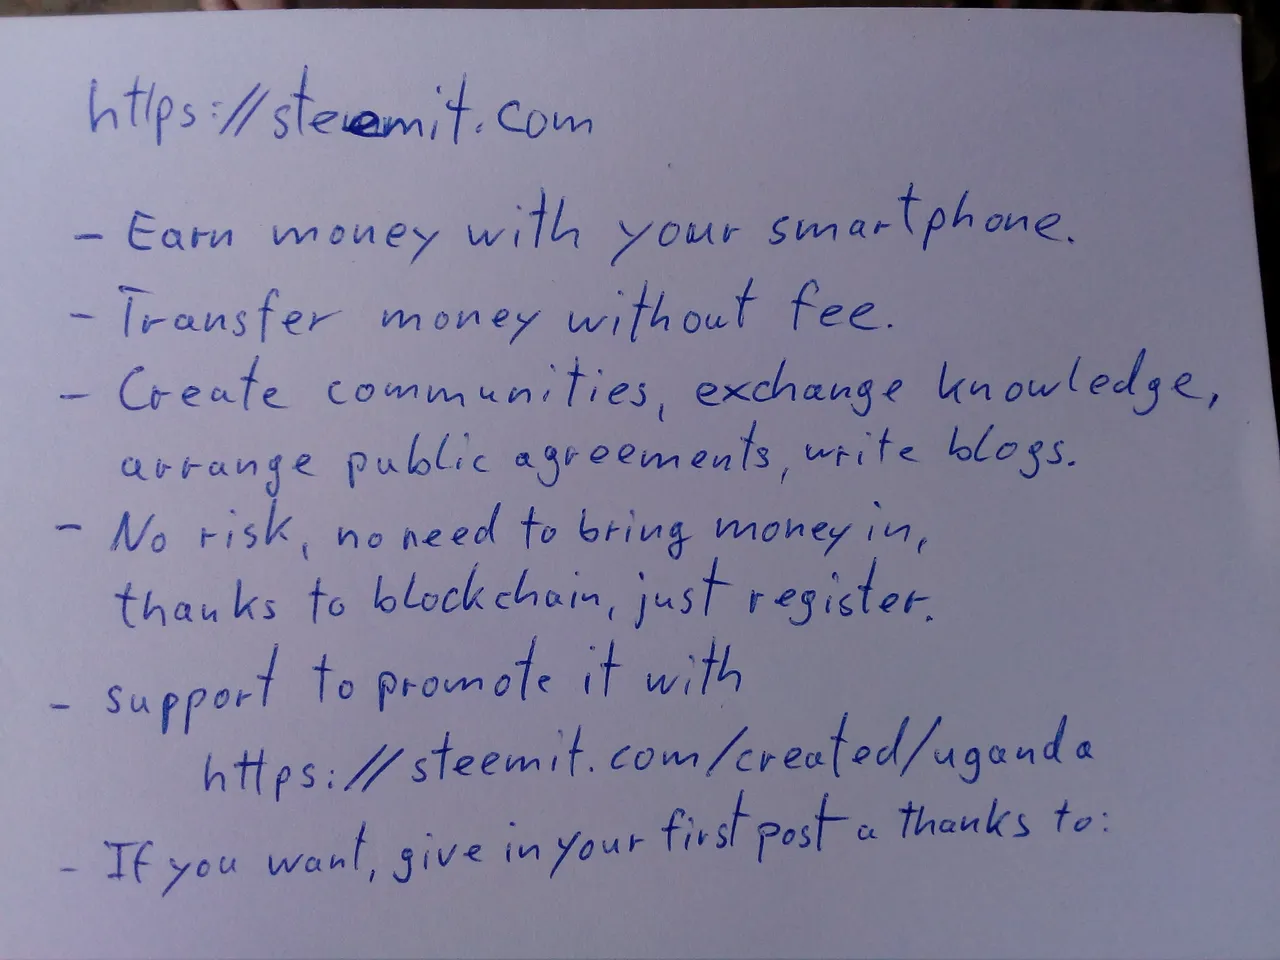 https://steemit.com
- Earn money with your smartphone.
- Transfer money without fee.
- Create communities, exchange knowledge,
arrange public agreements, write blogs.
- No risk, no need to bring money in,
thanks to blockchain, just register.
- support to promote it with
https://steemit.com/created/uganda
- If you want, give in your first post a thanks to: